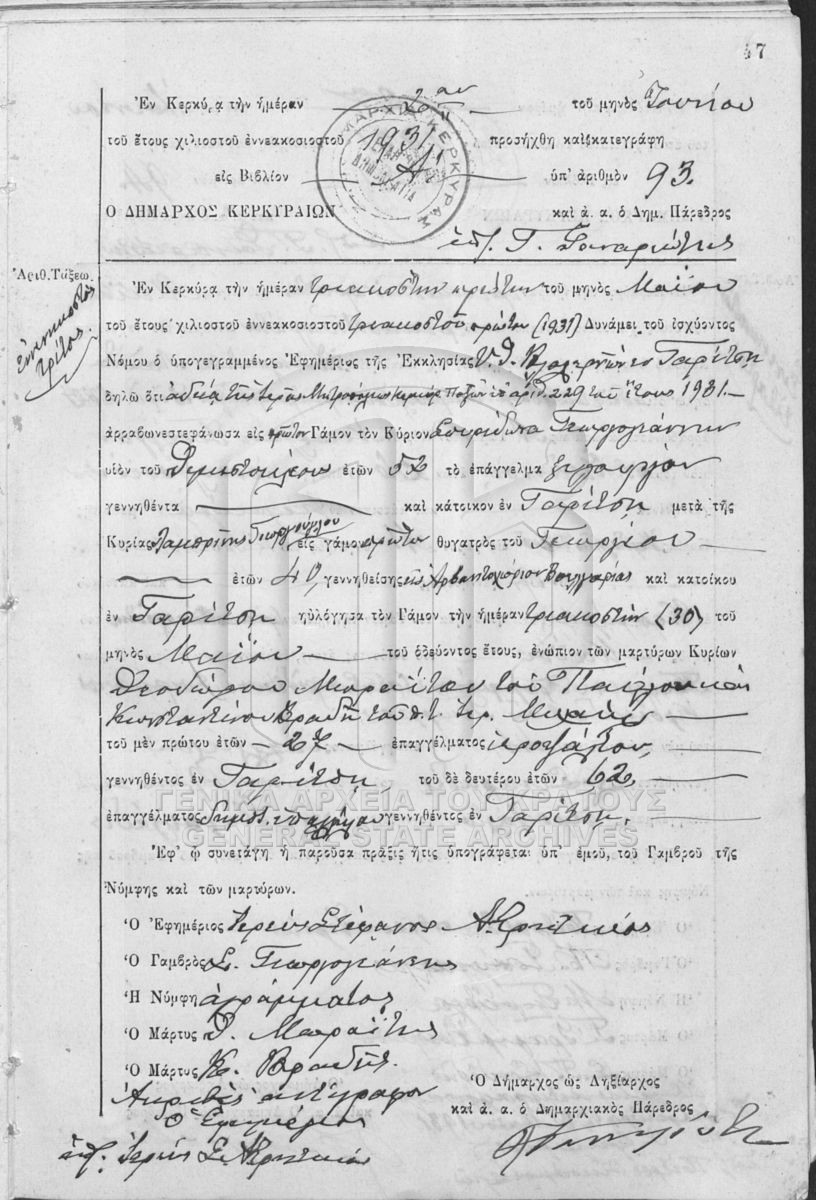 47
Ἐν Κερκύρᾳ τὴν ἡμέραν 2αν τοῦ μηνὸς Ἰουνίου
τοῦ ἔτους χιλιοστοῦ ἐννεακοσιοστοῦ 1931 προσήχθη καὶ κατεγράφη
εἰς Βιβλίον Α ὑπ' ἀριθμὸν 93.
Ο ΔΗΜΑΡΧΟΣ ΚΕΡΚΥΡΑΙΩΝ καὶ ἀ. α. ὁ Δημ. Πάρεδρος
ΔΗΜΑΡΧΙΑ ΚΕΡΚΥΡΑΣ
ΔΗΜΟΚΡΑΤΙΑ
ὑπ. Γ.
Ἀριθ. Τάξεω.
ἐνενηκοστὸς
τρίτος.
Ἐν Κερκύρᾳ τὴν ἡμέραν τριακοστὴν πρώτην τοῦ μηνὸς Μαΐου
τοῦ ἔτους χιλιοστοῦ ἐννεακοσιοστοῦ τριακοστοῦ πρώτου (1931) Δυνάμει τοῦ ἰσχύοντος
Νόμου ὁ ὑπογεγραμμένος Ἐφημέριος τῆς Ἐκκλησίας Υ. Θ. Βλαχερνῶν ἐν Γαρίτσῃ
δηλῶ ὅτι ἀδείᾳ τῆς Ἱερᾶς Μητροπόλεως Κερκύρ. Παξῶν ὑπ' ἀριθ. 229 τοῦ ἔτους 1931.
ἀρραβωνεστεφάνωσα εἰς πρῶτον Γάμον τὸν Κύριον Σπυρίδωνα Γεωργογιάννην
υἱὸν τοῦ Θεμιστοκλέου ἐτῶν 52 τὸ ἐπάγγελμα ξυλουργὸν
γεννηθέντα καὶ κάτοικον ἐν Γαρίτσῃ μετὰ τῆς
Κυρίας Λαμπρινῆς Γεωργούγλου εἰς γάμον πρῶτον θυγατρὸς τοῦ Γεωργίου
ἐτῶν 40, γεννηθείσης εἰς Ἀρβανιτοχώριον Βουλγαρίας καὶ κατοίκου
ἐν Γαρίτσῃ ηὐλόγησα τὸν Γάμον τὴν ἡμέραν τριακοστὴν (30) τοῦ
μηνὸς Μαΐου τοῦ ὁδεύοντος ἔτους, ἐνώπιον τῶν μαρτύρων Κυρίων
Θεοδώρου Μωραΐτου τοῦ Παύλου καὶ
Κωνσταντίνου Βραδῆ τοῦ π.τ. Ἱερ.
τοῦ μὲν πρώτου ἐτῶν 27 ἐπαγγέλματος ἱεροψάλτου,
γεννηθέντος ἐν Γαρίτσῃ, τοῦ δὲ δευτέρου ἐτῶν 62,
ΓΕΝΙΚΑ ΑΡΧΕΙΑ ΤΟΥ ΚΡΑΤΟΥΣ
ἐπαγγέλματος δημοτ. ὑπαλλήλου γεννηθέντος ἐν Γαρίτσῃ.
GENERAL STATE ARCHIVES
Ἐφ' ᾧ συνετάγη ἡ παροῦσα πρᾶξις ἥτις ὑπογράφεται ὑπ' ἐμοῦ, τοῦ Γαμβροῦ τῆς
Νύμφης καὶ τῶν μαρτύρων.
Ὁ Ἐφημέριος Ἱερεὺς Στέφανος
Ὁ Γαμβρὸς Σ. Γεωργογιάννης
Ἡ Νύμφη ἀγράμματος
Ὁ Μάρτυς Θ. Μωραΐτης
Ὁ Μάρτυς Κ. Βραδῆς.
Ἀκριβὲς ἀντίγραφον
Ὁ Ἐφημέριος
ὑπ. Ἱερεὺς Σ.
Ὁ Δήμαρχος ὡς Ληξίαρχος
καὶ ἀ. α. ὁ Δημαρχιακὸς Πάρεδρος